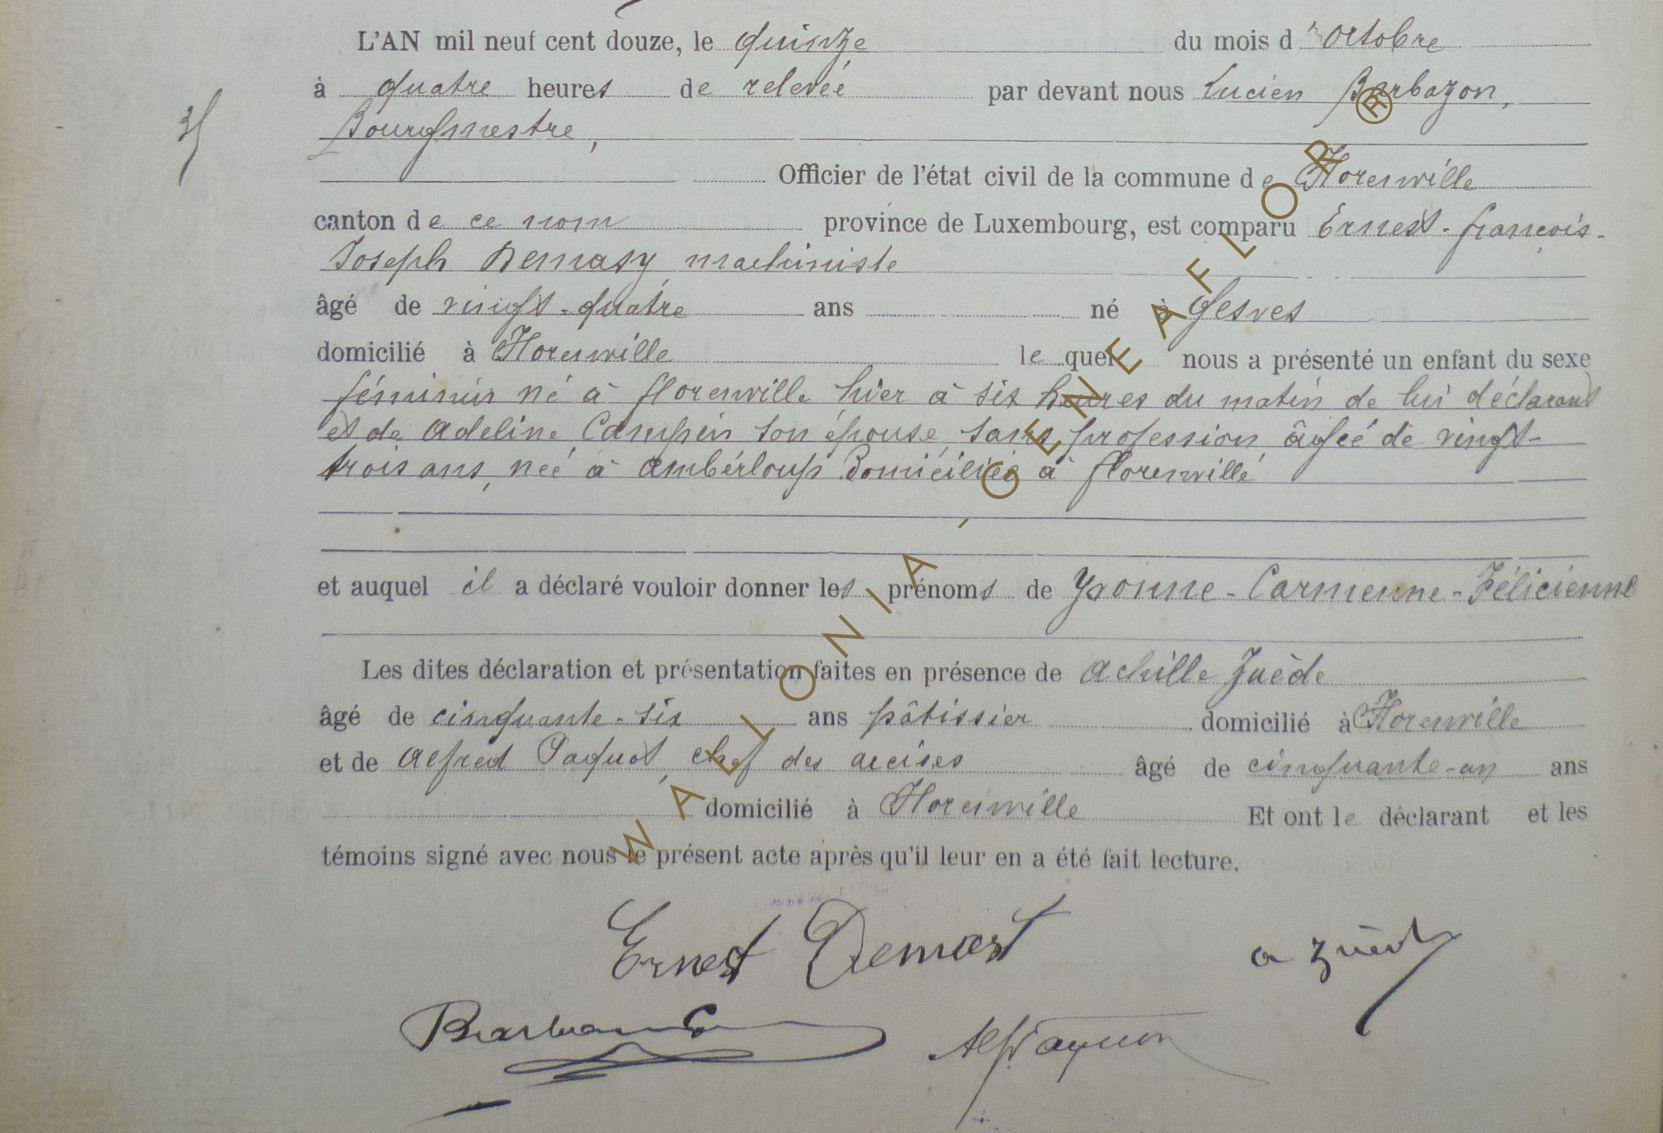 L'AN mil neuf cent douze, le quinze du mois d'octobre
à quatre heures de relevée par devant nous Lucien Barbazon,
Bourgmestre,
Officier de l'état civil de la commune de Florenville
canton de ce nom province de Luxembourg, est comparu Ernest-françois-
Joseph Demasy, machiniste
âgé de vingt-quatre ans né à Gesves
domicilié à Florenville lequel nous a présenté un enfant du sexe
féminin né à florenville hier à six heures du matin de lui déclarant
et de Adeline Campin son épouse sans profession âgée de vingt-
trois ans, née à Amberloup domiciliée à florenville
et auquel il a déclaré vouloir donner les prénoms de Yvonne-Carmenne-Félicienne
Les dites déclaration et présentation faites en présence de Achille Zuède
âgé de cinquante-six ans pâtissier domicilié à Florenville
et de Alfred Paquot, chef des accises âgé de cinquante-un ans
domicilié à Florenville Et ont le déclarant et les
témoins signé avec nous le présent acte après qu'il leur en a été fait lecture.
Ernest
WALLONIA - GENEAFLOR ®